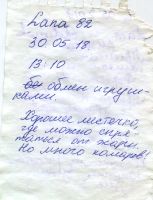 Lana 82
30 05 18
13:10
обмен игруш-
ками.
Хорошее местечко,
где можно спря-
таться от жары.
Но много комаров!